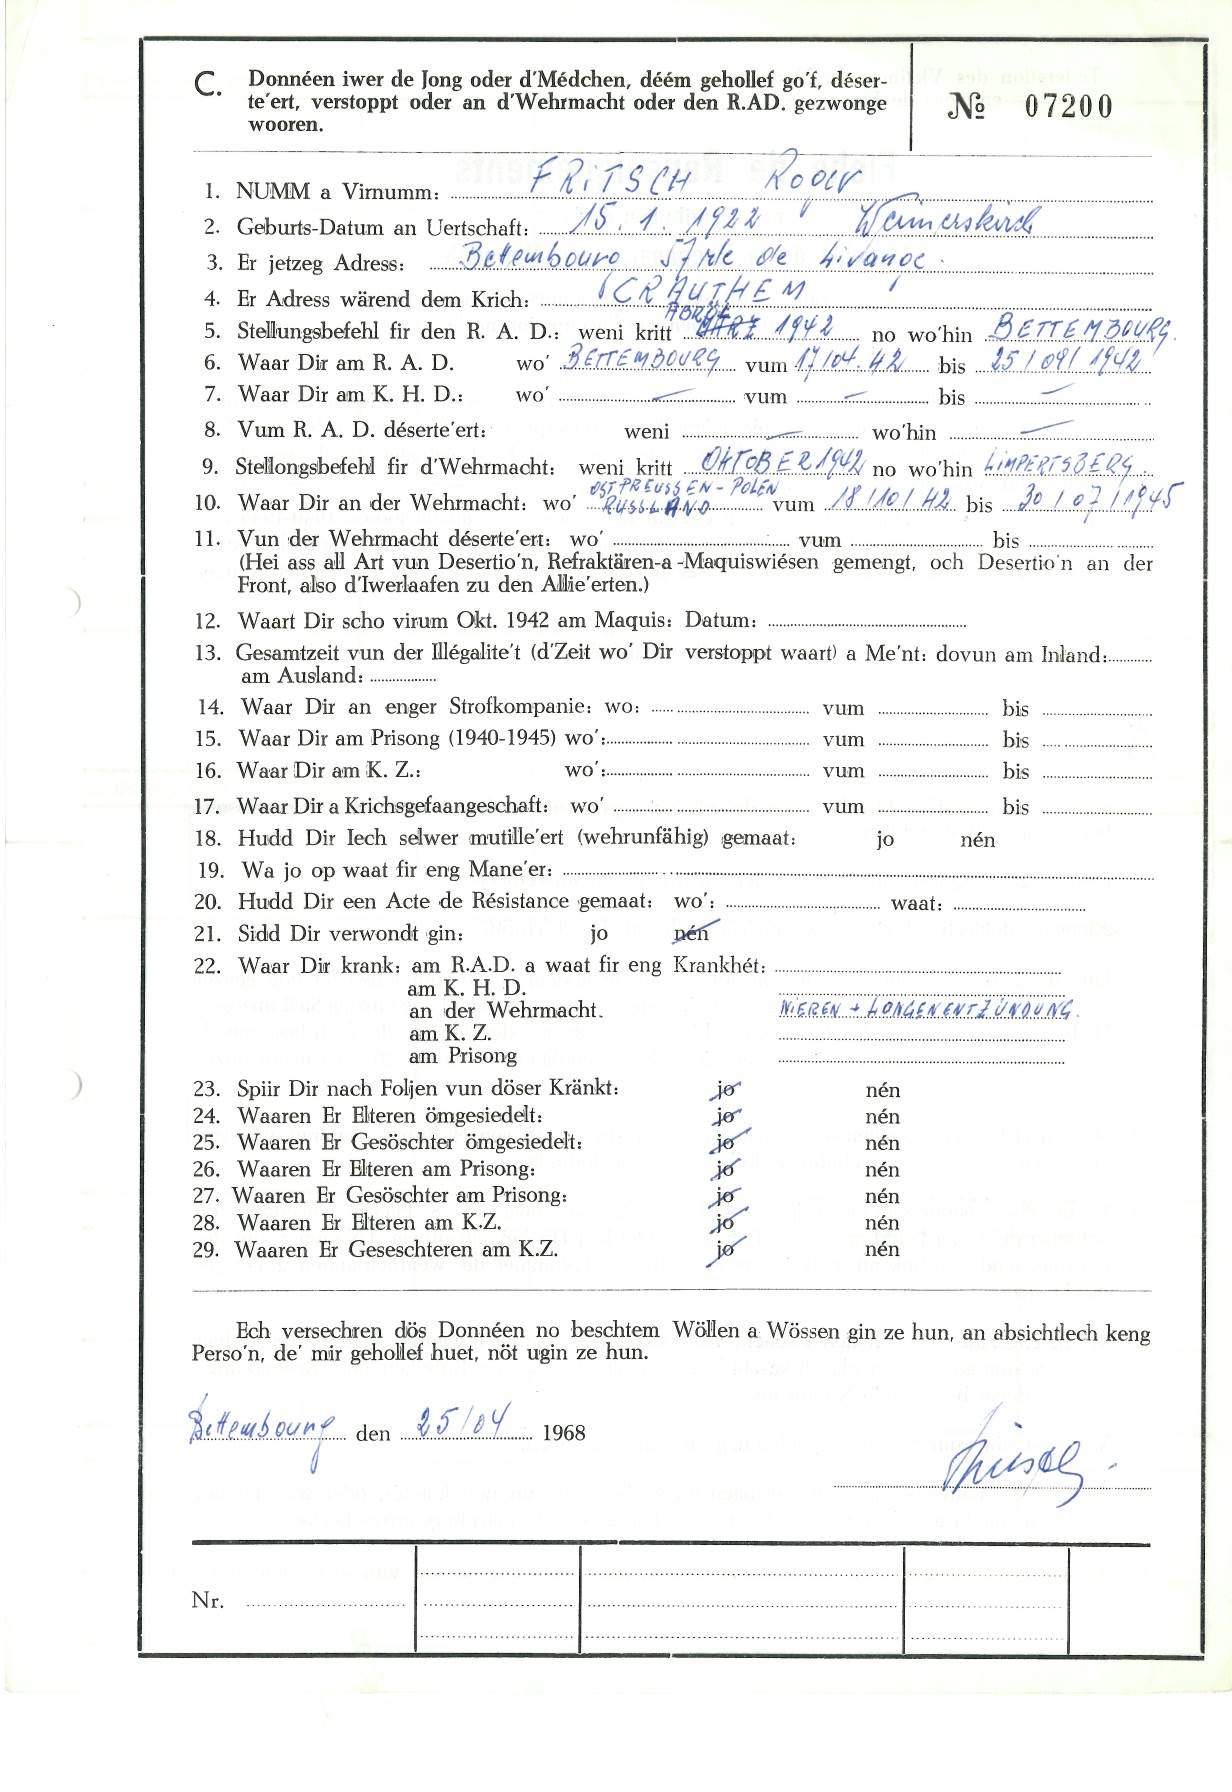 C. Donnéen iwer de Jong oder d'Médchen, déém gehollef go'f, déser-
te'ert, verstoppt oder an d'Wehrmacht oder den R.AD. gezwonge
wooren.
№ 07200
1. NUMM a Virnumm: FRITSCH Roger
2. Geburts-Datum an Uertschaft: 15.1.1922 Weimerskirch
3. Er jetzeg Adress: Bettembourg 57 rte de Livange
4. Er Adress wärend dem Krich: CRAUTHEM
5. Stellungsbefehl fir den R. A. D.: weni kritt ABRIL MÄRZ 1942 no wo'hin BETTEMBOURG
6. Waar Dir am R. A. D. wo' BETTEMBOURG vum 17/04.42 bis 25/09/1942
7. Waar Dir am K. H. D.: wo' — vum — bis —
8. Vum R. A. D. déserte'ert: weni — wo'hin —
9. Stellongsbefehl fir d'Wehrmacht: weni kritt OKTOBER 1942 no wo'hin LIMPERTSBERG
10. Waar Dir an der Wehrmacht: wo' OSTPREUSSEN - POLEN RUSSLAND vum 18/10/42 bis 30/07/1945
11. Vun der Wehrmacht déserte'ert: wo' vum bis
(Hei ass all Art vun Desertio'n, Refraktären-a-Maquiswiésen gemengt, och Desertio'n an der
Front, also d'Iwerlaafen zu den Allie'erten.)
12. Waart Dir scho virum Okt. 1942 am Maquis: Datum:
13. Gesamtzeit vun der Illégalite't (d'Zeit wo' Dir verstoppt waart) a Me'nt: dovun am Inland:
am Ausland:
14. Waar Dir an enger Strofkompanie: wo: vum bis
15. Waar Dir am Prisong (1940-1945) wo': vum bis
16. Waar Dir am K. Z.: wo': vum bis
17. Waar Dir a Krichsgefaangeschaft: wo' vum bis
18. Hudd Dir Iech selwer mutille'ert (wehrunfähig) gemaat: jo nén
19. Wa jo op waat fir eng Mane'er:
20. Hudd Dir een Acte de Résistance gemaat: wo': waat:
21. Sidd Dir verwondt gin: jo nén
22. Waar Dir krank: am R.A.D. a waat fir eng Krankhét:
am K. H. D.
an der Wehrmacht. NIEREN + LONGENENTZÜNDUNG.
am K. Z.
am Prisong
23. Spiir Dir nach Foljen vun döser Kränkt: jo nén
24. Waaren Er Elteren ömgesiedelt: jo nén
25. Waaren Er Gesöschter ömgesiedelt: jo nén
26. Waaren Er Elteren am Prisong: jo nén
27. Waaren Er Gesöschter am Prisong: jo nén
28. Waaren Er Elteren am K.Z. jo nén
29. Waaren Er Geseschteren am K.Z. jo nén
Ech versechren dös Donnéen no beschtem Wöllen a Wössen gin ze hun, an absichtlech keng
Perso'n, de' mir gehollef huet, nöt ugin ze hun.
Bettembourg den 25/04 1968
Nr.